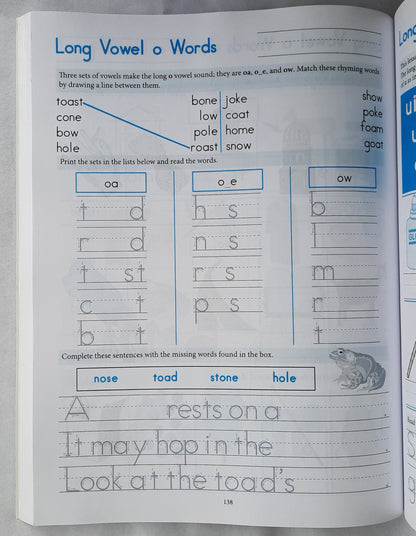 Long Vowel o Words
Three sets of vowels make the long o vowel sound; they are oa, o_e, and ow. Match these rhyming words
by drawing a line between them.
toast bone joke show
cone low coat poke
bow pole home foam
hole roast snow goat
Print the sets in the lists below and read the words.
oa o_e ow
t d h s b
r d n s l
t st r s m
c t p s r
b t t
Complete these sentences with the missing words found in the box.
nose toad stone hole
A rests on a .
It may hop in the .
Look at the toad's .
138